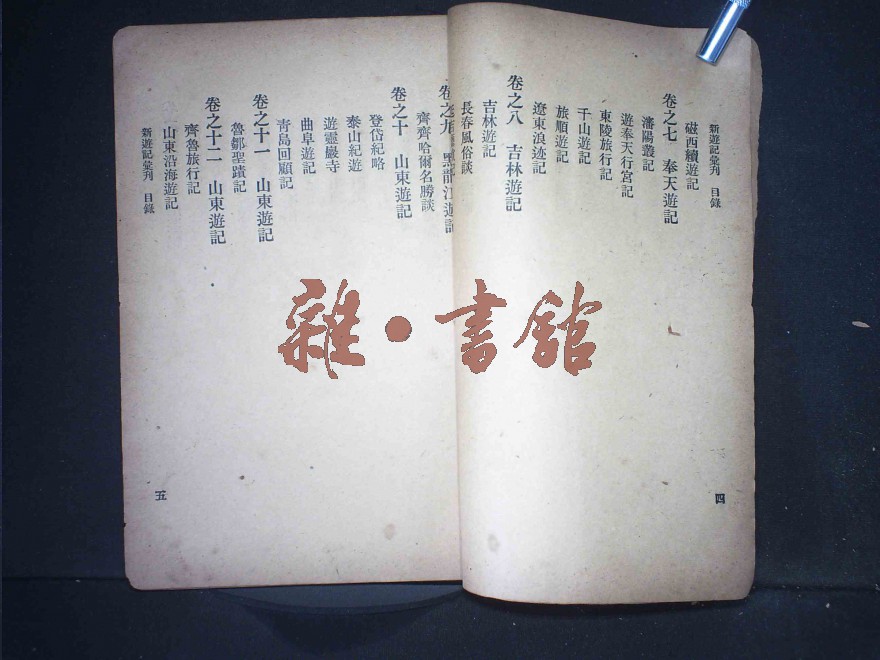 新遊記彙刋　目錄
磁西續遊記
卷之七　奉天遊記
瀋陽叢記
遊奉天行宮記
東陵旅行記
千山遊記
旅順遊記
遼東浪迹記
卷之八　吉林遊記
吉林遊記
長春風俗談
四
卷之九　黑龍江遊記
齊齊哈爾名勝談
卷之十　山東遊記
登岱紀略
泰山紀遊
遊靈巖寺
曲阜遊記
青島回顧記
卷之十一　山東遊記
魯鄒聖蹟記
卷之十二　山東遊記
齊魯旅行記
山東沿海遊記
新遊記彙刋　目錄
五
雜·書館